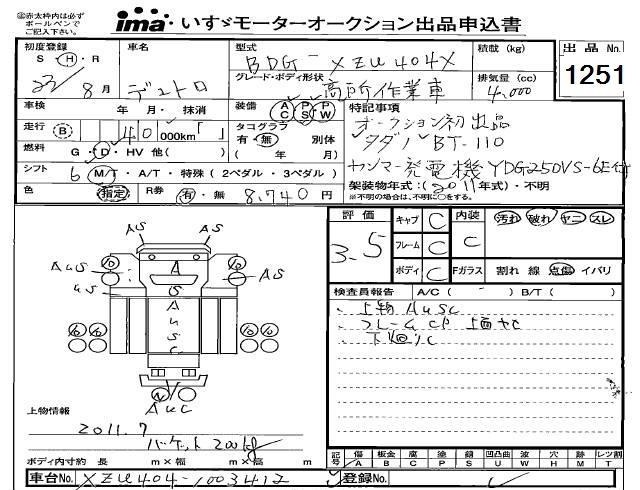 ㊟赤太枠内は必ず
ボールペンで
ご記入下さい。
ima いすゞモーターオークション出品申込書
出品No.
1251
初度登録
S・H・R
23/8月
車名
デュトロ
型式
BDG-XZU404X
グレード・ボディ形状
高所作業車
積載(kg)
排気量(cc)
4,000
車検 年・月・抹消
走行 B 40 000km「 」
燃料 G・D・HV 他( )
シフト 6 M/T・A/T・特殊(2ペダル・3ペダル)
色 指定 R券 有・無 8,740円
装備 AC PS PW
タコグラフ 別体
有・無( 年)
特記事項
オークション初出品
タダノBT-110
ヤンマー発電機YDG250VS-6E付
架装物年式:(2011年式)・不明
※不明の場合は、不明に○をする。
評価
3.5
キャブ C
フレーム C
ボディ C
内装 C
汚れ 破れ ヤニ スレ
Fガラス 割れ 線 点傷 イバリ
検査員報告 A/C( ) B/T( )
上物AUSC
フレームCP上面サC
AS AS
AUS
A
AS
US
S
A
U
S
C
AUC
上物情報
2011.7
バケット200kg
ボディ内寸約 長 m×幅 m×高 m
記号 傷A 板金B 腐C 塗P 錆S 凹凸曲U 波W 穴H 跡M レツ割T
車台No. XZU404-1003412
登録No.